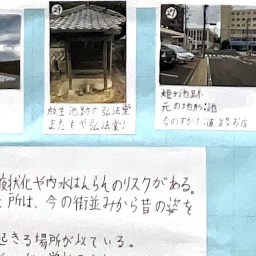 放生池跡の弘法堂
またもや弘法堂!
姫ヶ池跡
元の地形:池
今のすがた:道
液状化や内水はんらんのリスクがある。
所は、今の街並みから昔の姿を
起きる場所が似ている。